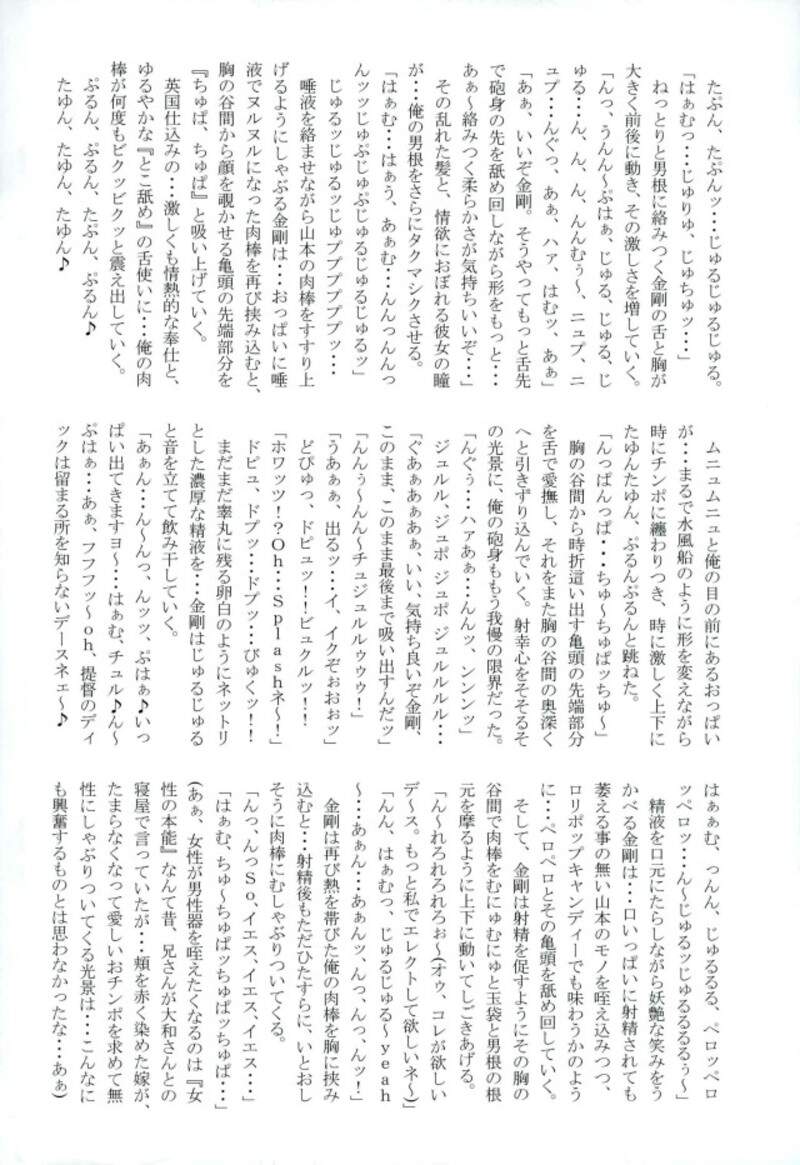 たぷん、たぷんッ・・・じゅるじゅるじゅる。
「はぁむっ・・・じゅりゅ、じゅちゅッ・・・」
　ねっとりと男根に絡みつく金剛の舌と胸が
大きく前後に動き、その激しさを増していく。
「んっ、うんん～ぷはぁ、じゅる、じゅる、じ
ゅる・・ん、ん、ん、んんむぅ～、ニュプ、ニ
ュプ・・・んぐっ、あぁ、ハァ、はむッ、あぁ」
「あぁ、いいぞ金剛。そうやってもっと舌先
で砲身の先を舐め回しながら形をもっと・・・
あぁ～絡みつく柔らかさが気持ちいいぞ・・・」
　その乱れた髪と、情欲におぼれる彼女の瞳
が・・・俺の男根をさらにタクマシクさせる。
「はぁむ・・・はぁう、あぁむ・・・んんっんんっ
んッッじゅぷじゅぷじゅるじゅるじゅるッ」
　じゅるッじゅるッじゅプププププッ・・・
　唾液を絡ませながら山本の肉棒をすすり上
げるようにしゃぶる金剛は・・・おっぱいに唾
液でヌルヌルになった肉棒を再び挟み込むと、
胸の谷間から顔を覗かせる亀頭の先端部分を
『ちゅぱ、ちゅぱ』と吸い上げていく。
　英国仕込みの・・・激しくも情熱的な奉仕と、
ゆるやかな『とこ舐め』の舌使いに・・・俺の肉
棒が何度もビクッビクッと震え出していく。
　ぷるん、ぷるん、たぷん、ぷるん♪
　たゆん、たゆん、たゆん♪
　ムニュムニュと俺の目の前にあるおっぱい
が・・・まるで水風船のように形を変えながら
時にチンポに纏わりつき、時に激しく上下に
たゆんたゆん、ぷるんぷるんと跳ねた。
「んっぱんっぱ・・・ちゅ～ちゅぱッちゅ～」
　胸の谷間から時折這い出す亀頭の先端部分
を舌で愛撫し、それをまた胸の谷間の奥深く
へと引きずり込んでいく。射幸心をそそるそ
の光景に、俺の砲身ももう我慢の限界だった。
「んぐぅ・・・ハァあぁ・・・んんッ、ンンンッ」
　ジュルル、ジュポ ジュポ ジュルルルル・・・
「ぐあぁあぁあぁ、いい、気持ち良いぞ金剛、
このまま、このまま最後まで吸い出すんだッ」
「んんぅ～んん～チュジュルルゥゥゥ！」
「うあぁぁ、出るッ・・・イ、イクぞぉおぉッ」
　どぴゅっ、ドピュッ！！ビュクルッ！！！
「ホワッツ！？Ｏｈ・・・Ｓｐｌａｓｈネ～！」
　ドピュ、ドプッ・・・ドプッ・・・びゅくッ！！！
　まだまだ睾丸に残る卵白のようにネットリ
とした濃厚な精液を・・・金剛はじゅるじゅる
と音を立てて飲み干していく。
「あぁん・・・ん～んっ、んッッ、ぷはぁ♪いっ
ぱい出てきますヨ～・・・はぁむ、チュル♪ん～
ぷはぁ・・・あぁ、フフフッ～ｏｈ、提督のディ
ックは留まる所を知らないデースネェ～♪
はぁぁむ、つんん、じゅるるる、ペロッペロ
ッペロッ・・・ん～じゅるッじゅるるるるぅ～」
　精液を口元にたらしながら妖艶な笑みをう
かべる金剛は・・・口いっぱいに射精されても
萎える事の無い山本のモノを咥え込みつつ、
ロリポップキャンディーでも味わうかのよう
に・・・ペロペロとその亀頭を舐め回していく。
　そして、金剛は射精を促すようにその胸の
谷間で肉棒をむにゅむにゅと玉袋と男根の根
元を摩るように上下に動いてしごきあげる。
「ん～れろれろれろぉ～(オゥ、コレが欲しい
デース。もっと私でエレクトして欲しいネ～)」
「んん、はぁむっ、じゅるじゅる～ｙｅａｈ
～・・・あぁん・・・あぁんッ、んっ、んっ、んッ！」
　金剛は再び熱を帯びた俺の肉棒を胸に挟み
込むと・・・射精後もただひたすらに、いとおし
そうに肉棒にむしゃぶりついてくる。
「んっ、んっＳｏ、イエス、イエス、イエス・・・」
「はぁむ、ちゅ～ちゅぱッちゅぱッちゅぱ・・・」
(あぁ、女性が男性器を咥えたくなるのは『女
性の本能』なんて昔、兄さんが大和さんとの
寝屋で言っていたが・・・頬を赤く染めた嫁が、
たまらなくなって愛しいおチンポを求めて無
性にしゃぶりついてくる光景は・・・こんなに
も興奮するものとは思わなかったな・・・あぁ)